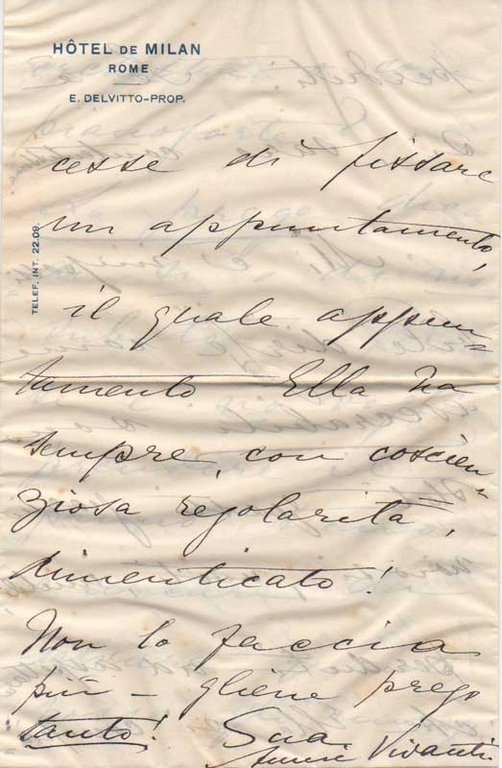 HÔTEL DE MILAN
ROME
E. DELVITTO-PROP.
TELEF. INT. 22.09.
cesse di fissare
un appuntamento,
il quale appun=
tamento Ella ha
sempre, con coscien=
ziosa regolarità,
dimenticato!
Non lo faccia
più - gliene prego
tanto! Sua
Annie Vivanti